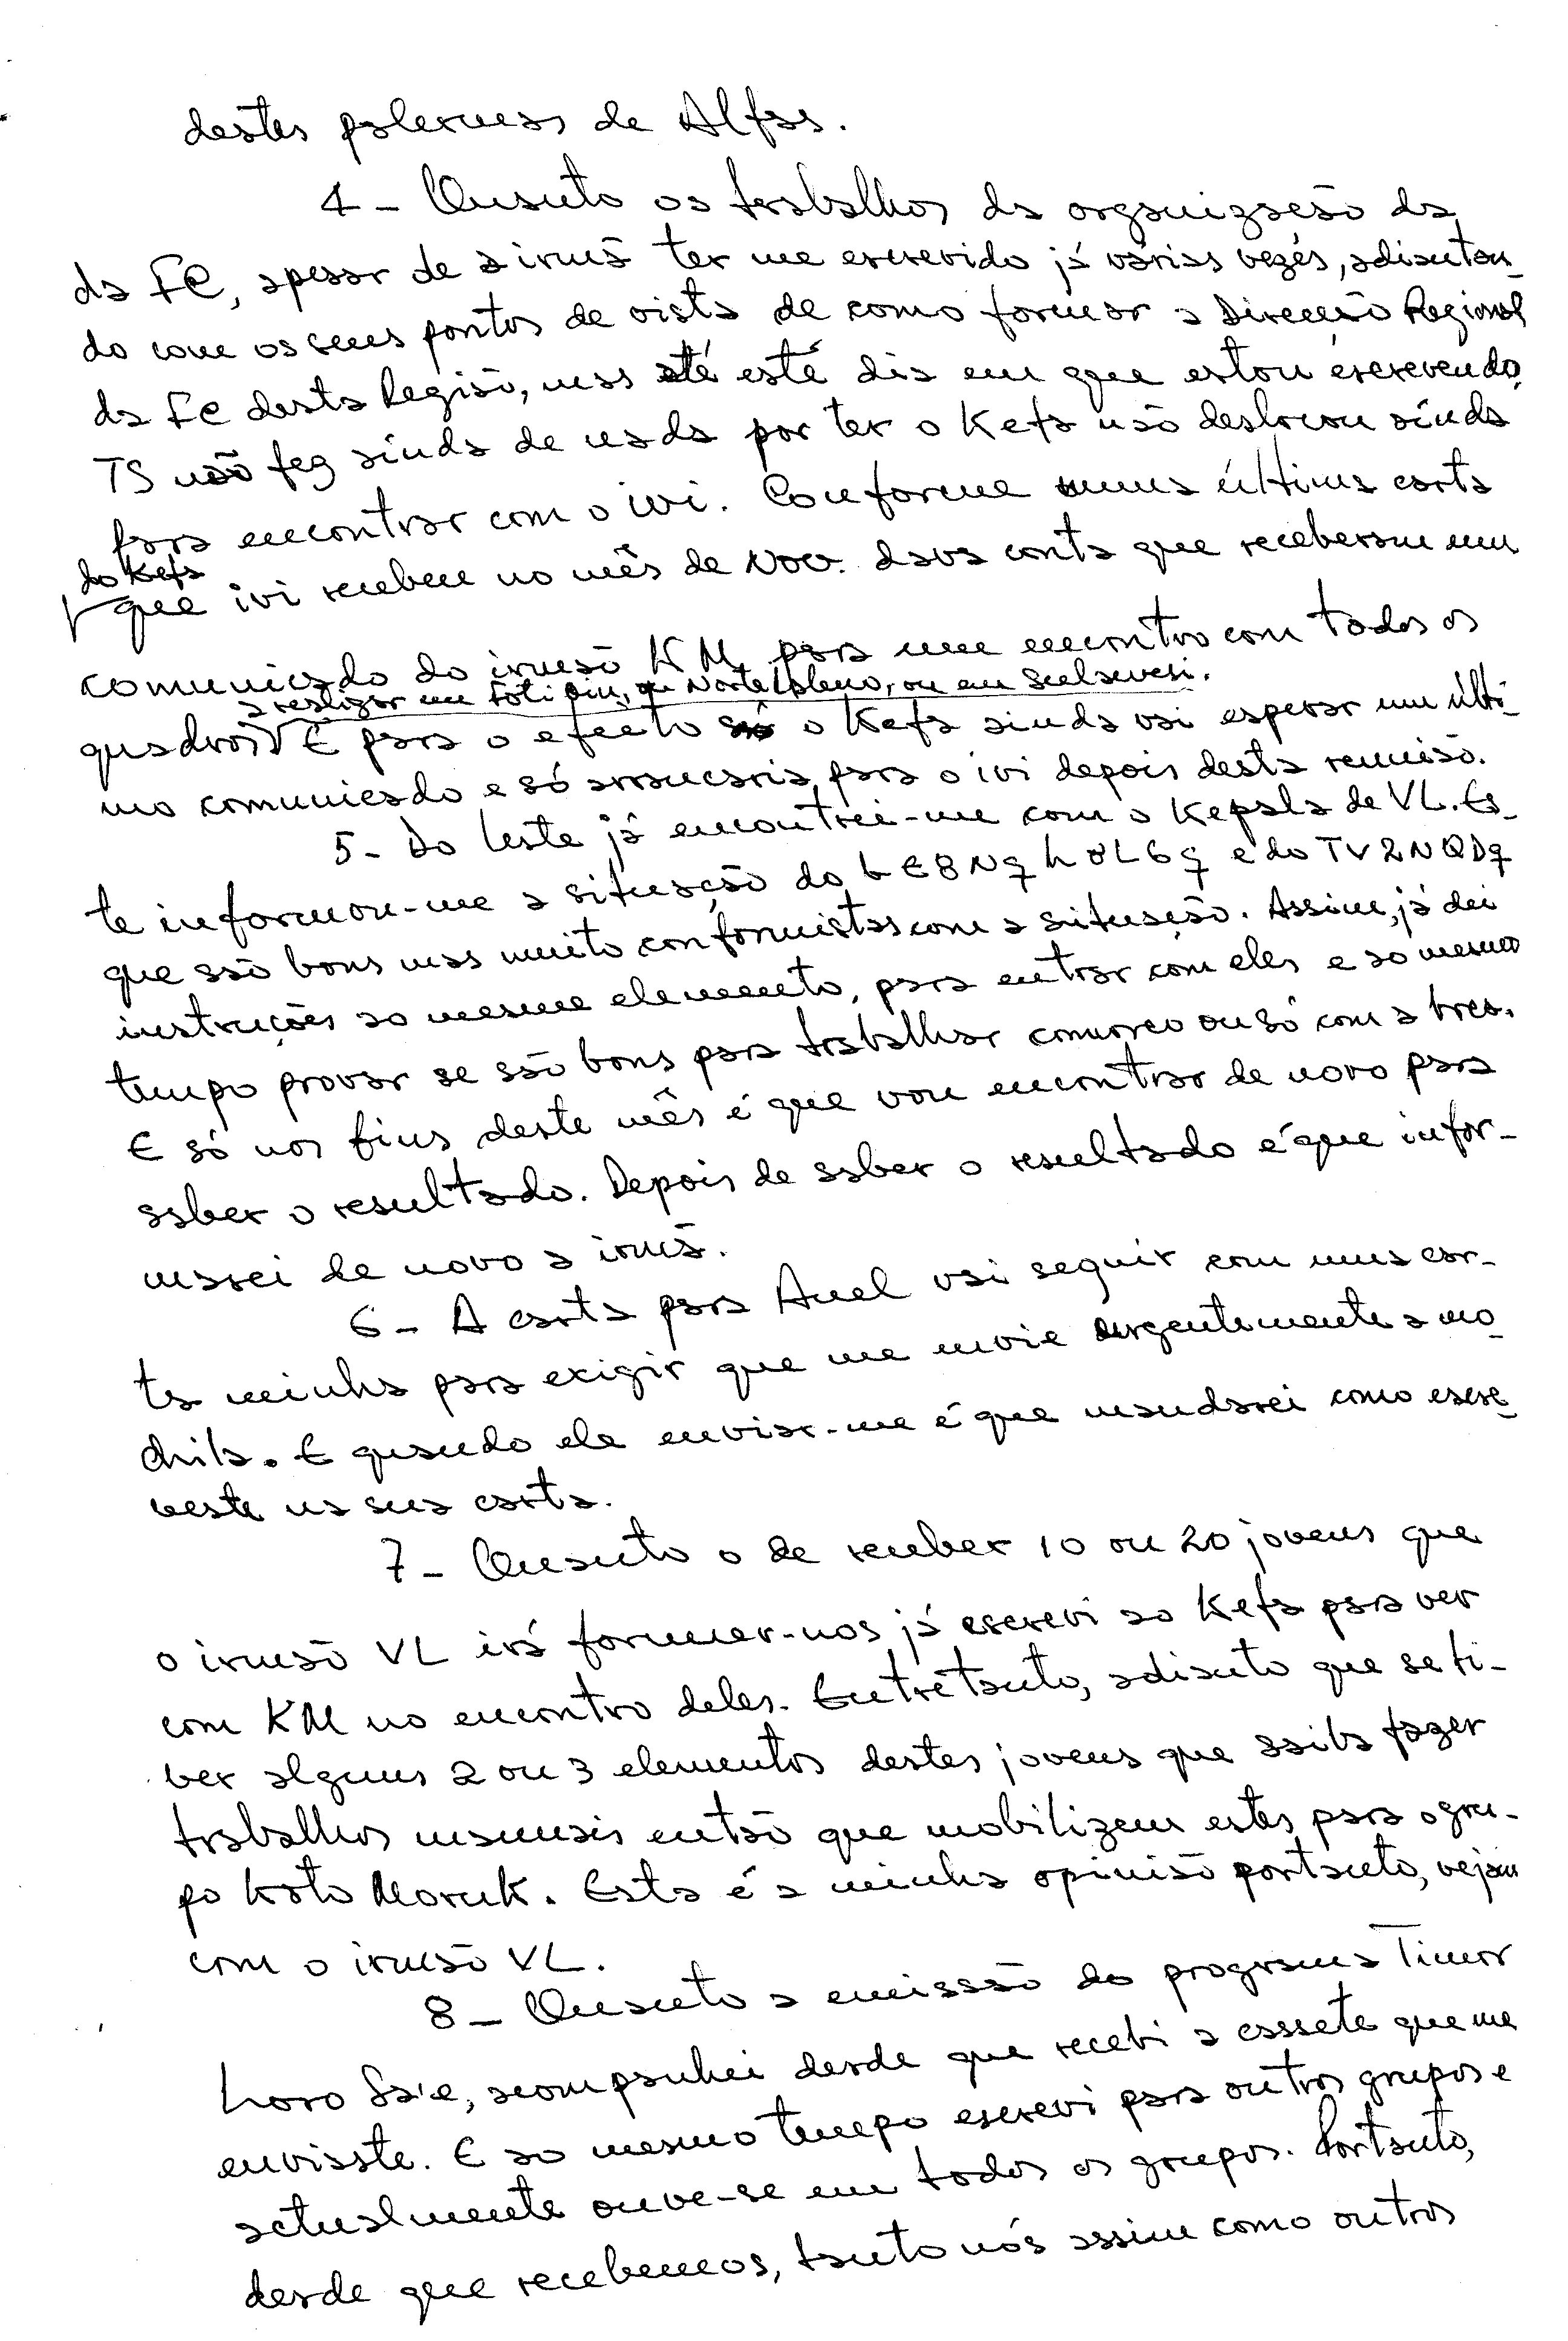 destes palermas de Alfas.
4 - Quanto os trabalhos da organização da
da FC, apesar de a irmã ter me escrevido já várias vezés, adiantan-
do com os seus pontos de vista de como formar a Direcção Regional
da FC desta Região, mas até esté dia em que estou escrevendo,
TS não fez ainda de nada por ter o Kefa não deslocou ainda
para encontrar com o ivi. Conforme numa última carta
do Kefa
que ivi recebeu no mês de Nov. dava conta que receberam um
comunicado do irmão KM, para um encontro com todos os
a realizar em Foti Din, ou Norte Ableno, ou em Suelaweri.
quadros E para o efeito o Kefa ainda vai esperar um últi-
mo comunicado e só arrancaria para o ivi depois desta reunião.
5 - Do leste já encontrei-me com o Kepala de VL. Es-
te informou-me a situação do e do TV2NQDq
que são bons mas muito conformistas com a situação. Assim, já dei
instruções ao mesme elemento, para entrar com eles e ao mesmo
tempo provar se são bons para trabalhar conosco ou só com a
E só nos fins deste mês é que vou encontrar de novo para
saber o resultado. Depois de saber o resultado é que infor-
marei de novo a irmã.
6 - A carta para Anel vai seguir com uma car-
ta minha para exigir que me envie urgentemente a mo-
chila. E quando ele enviar-me é que mandarei como escre-
veste na sua carta.
7 - Quanto o de receber 10 ou 20 jovens que
o irmão VL irá formecer-nos já escrevi ao Kefa para ver
com KM no encontro deles. Entretanto, adianto que se ti-
ver alguns 2 ou 3 elementos destes jovens que saiba fazer
trabalhos manuais então que mobilizem estes para o gru-
po Koto Moruk. Esta é a minha opinião portanto, vejam
com o irmão VL.
8 - Quanto a emissão do programa Timor
Loro Sa'e, acompanhei desde que recebi a cassete que me
enviaste. E ao mesmo tempo escrevi para outros grupos e
actualmente ouve-se em todos os grupos. Portanto,
desde que recebemos, tanto nós assim como outros